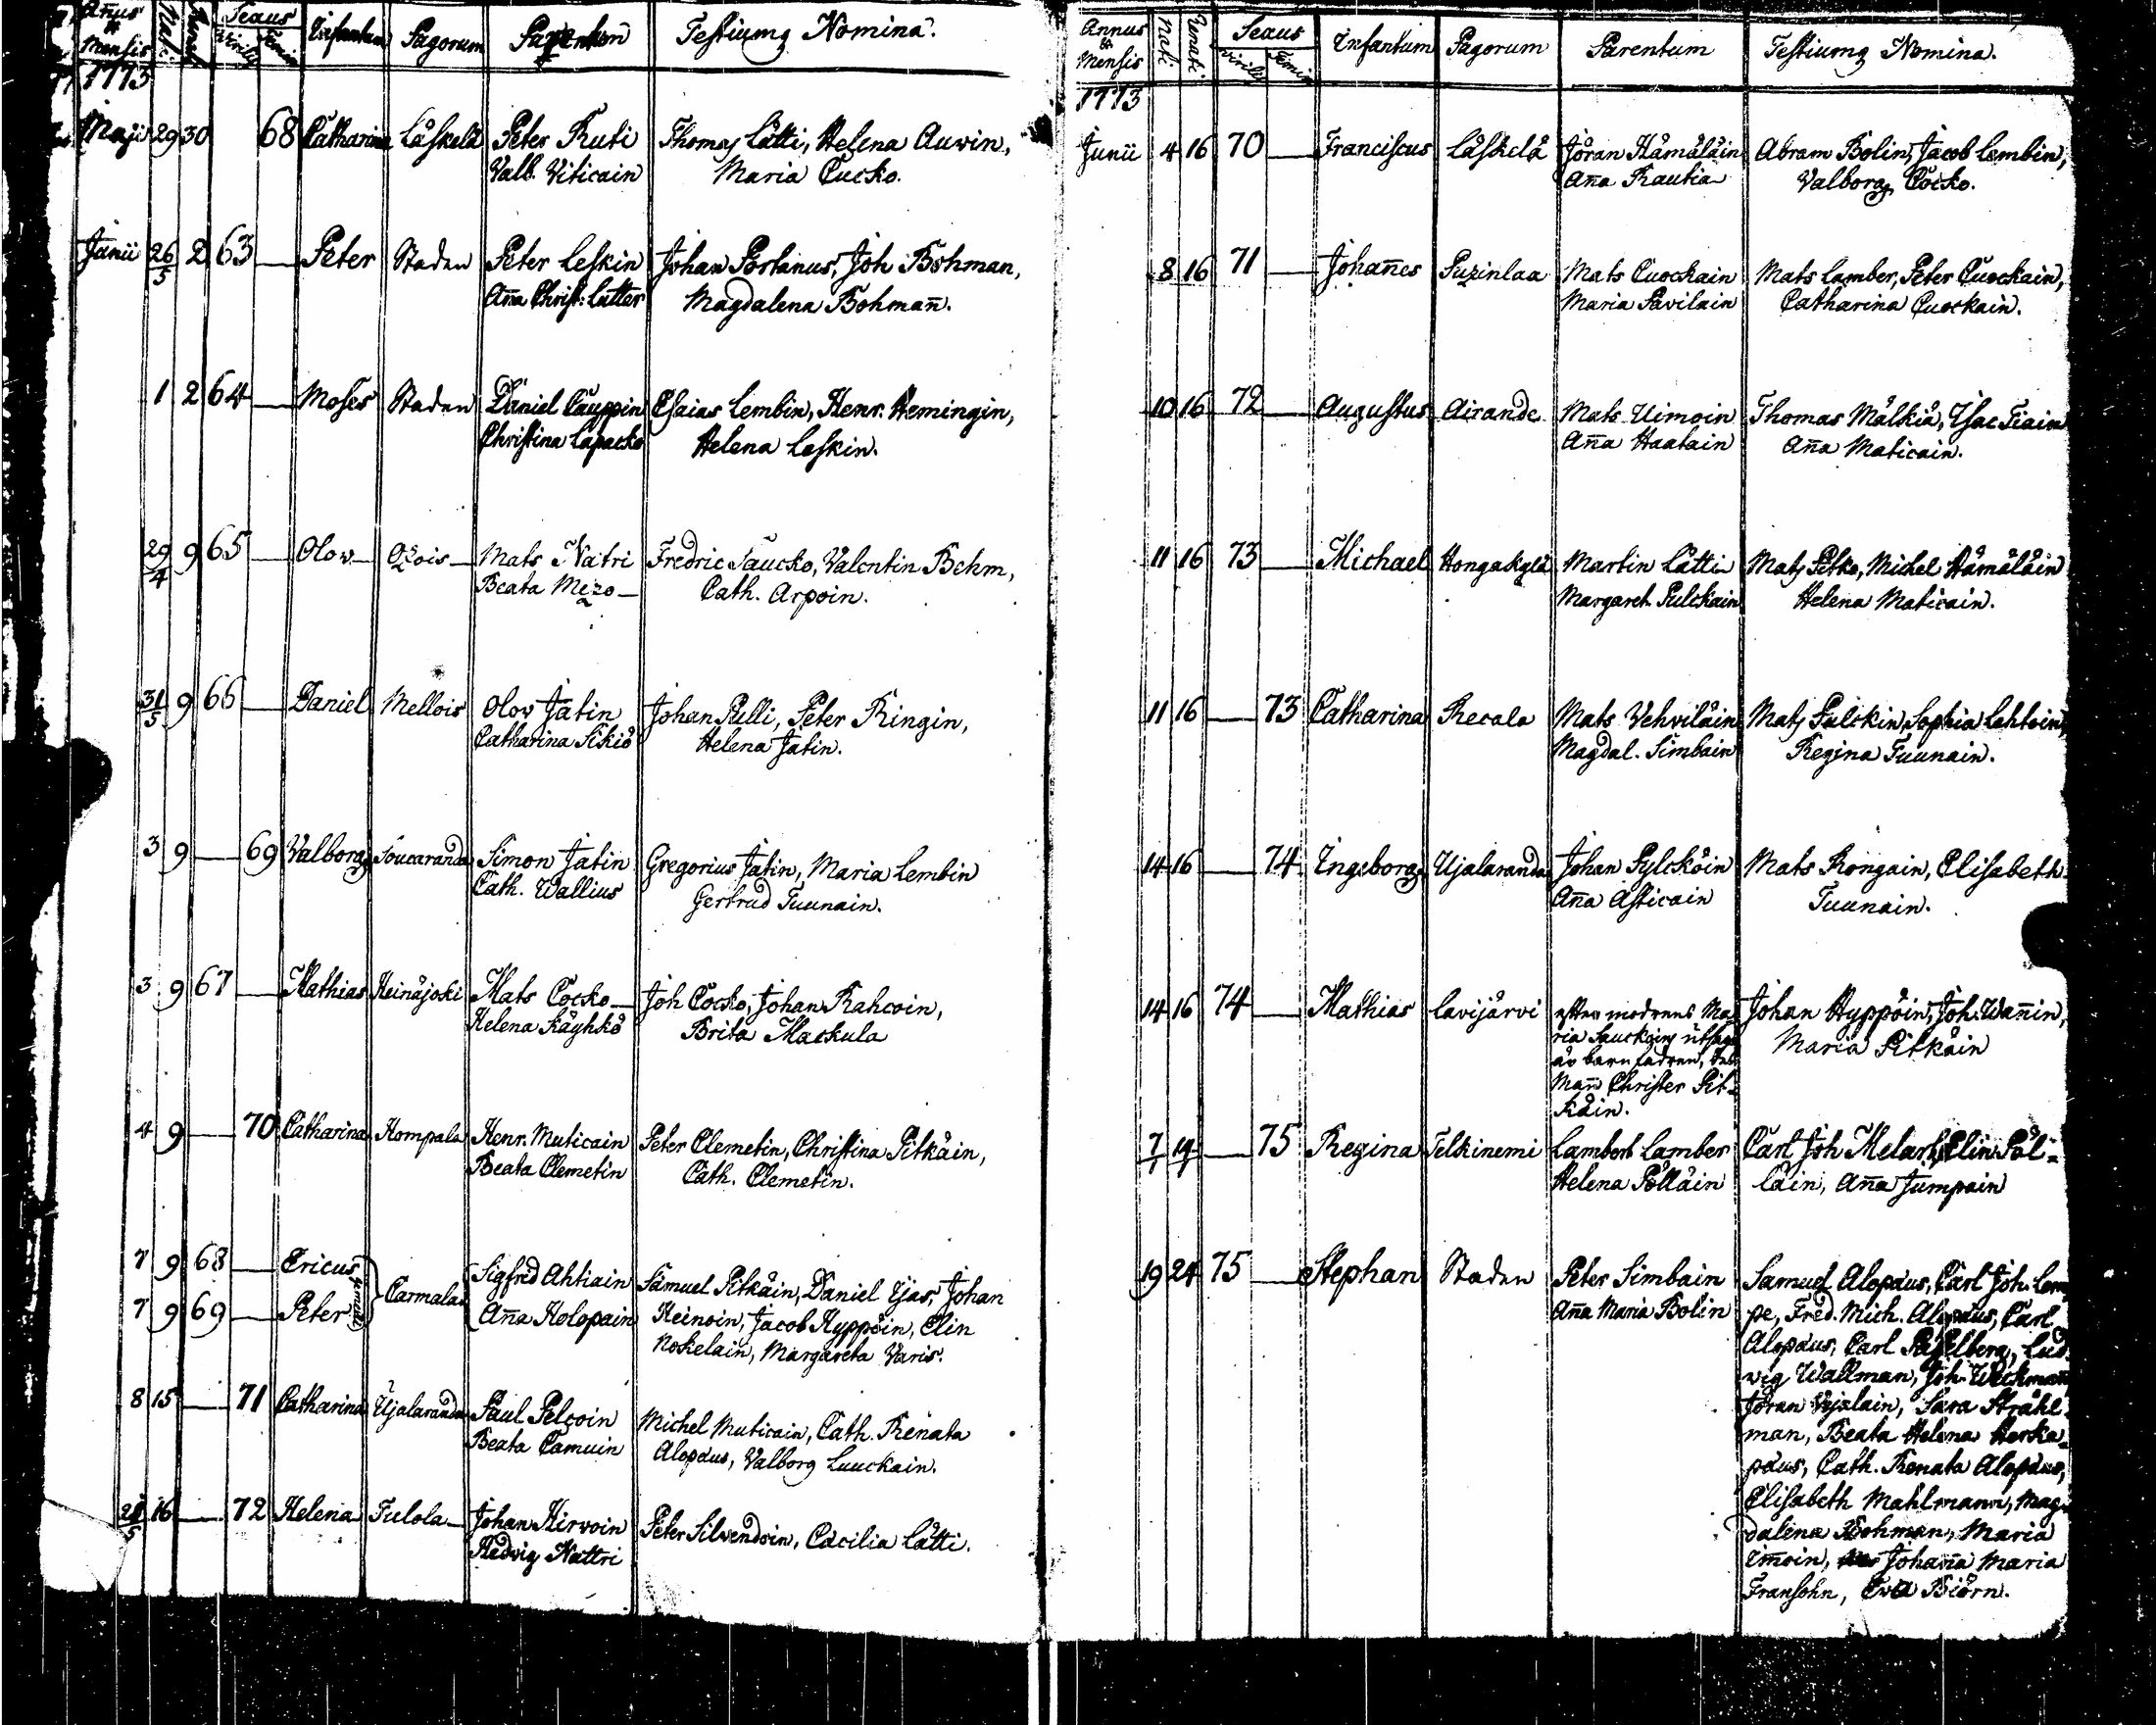 Annus & Mensis Nati Renati Sexus Virilis Femin Infantum Pagorum Parentum Testiumq Nomina.
1773
Maji 29 30 68 Catharina Läskelä Peter Ruti Thomas Lätti, Helena Auvin,
Valb. Viticain Maria Cucko.
Junii 26/5 2 63 — Peter Staden Peter Leskin Johan Portanus, Joh Bohman,
Aña Christ: Lutter Magdalena Bohmañ.
1 2 64 — Moses Staden Daniel Cauppin Esaias Lembin, Henr. Hemingin,
Christina Lapacko Helena Leskin.
29/4 9 65 — Olow Ozois Mats Natri Fredric Taucko, Valentin Behm,
Beata Mezo Cath. Arpoin.
31/5 9 66 — Daniel Mellois Olov Jatin Johan Pulli, Peter Ringin,
Catharina Sikiö Helena Jätin.
3 9 — 69 Valborg Soucaranda Simon Jatin Gregorius Jatin, Maria Lembin
Cath. Wallius Gertrud Tuunain.
3 9 67 — Mathias Heinäjoki Mats Cocko Joh Cocko, Johan Rahcoin,
Helena Käyhkö Brita Mackula
4 9 — 70 Catharina Hompala Henr. Muticain Peter Clemetin, Christina Pitkäin,
Beata Clemetin Cath. Clemetin.
7 9 68 — Ericus Carmala Sigfred Ahtiain Samuel Pitkäin, Daniel Ejas, Johan
7 9 69 — Peter Aña Holopain Heinoin, Jacob Hyppöin, Elin
Nokelain, Margareta Varis.
8 15 — 71 Catharina Ujalaranda Paul Pelcoin Michel Muticain, Cath. Renata
Beata Camuin Alopäus, Valborg Luuckain.
16 — 72 Helena Tulola Johan Hirvoin Peter Silvendoin, Cäcilia Lätti.
Hedvig Nattri
Annus & Mensis Nati Renati Sexus Virilis Femin Infantum Pagorum Parentum Testiumq Nomina.
1773
Junii 4 16 70 — Franciscus Läskelä Jöran Hämäläin Abram Bolin, Jacob Lembin,
Aña Rautia Valborg Cocko.
8 16 71 — Johañes Puzinlaa Mats Cuockain Mats Lamber, Peter Cuockain,
Maria Pavilain Catharina Cuockain.
10 16 72 — Augustus Airande Mats Uimoin Thomas Mälkiä, Isac Tiain
Aña Haatain Aña Maticain.
11 16 73 — Michael Hongakylä Martin Lätti Mats Pitko, Michel Hämäläin
Margaret. Pulckain Helena Maticain.
11 16 — 73 Catharina Recala Mats Vehviläin Mats Pulckin, Sophia Lehtoin,
Magdal. Simbain Regina Tuunain.
14 16 — 74 Ingeborg Ujalaranda Johan Pylcköin Mats Rongain, Elisabeth
Aña Asticain Tuunain.
14 16 74 — Mathias Lavijärvi efter modrens Ma- Johan Hyppöin, Joh. Wañin,
ria Sauckoins utsago Maria Pitkäin
är barnfadren,
Mañ Christer Pit-
käin.
7/1 — 75 Regina Telkinemi Lambert Lamber Carl Joh Melart, Elin Pöl-
Helena Pölläin läin, Aña Jumpain
19 24 75 — Stephan Staden Peter Simbain Samuel Alopäus, Carl Joh. Lem
Aña Maria Bolin pe, Fred. Mich. Alopäus, Carl
Alopäus, Carl Lud
vig Wallman, Joh. Weckmañ
Jöran Ujalain, Sara Stråhl-
man, Beata Helena Herka-
päus, Cath. Renata Alopäus,
Elisabeth Mahlmann, Mag-
dalena Bohman, Maria
Imoin, Johaña Maria
Fransohn, Eva Biörn.